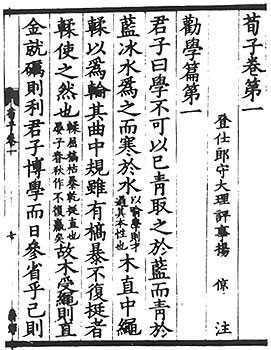 荀子卷第一
登仕郎守大理評事楊 倞 注
勸學篇第一
君子曰學不可以已青取之於藍而青於
藍冰水爲之而寒於水以喻學則才過其本性也木直中繩
輮以爲輪其曲中規雖有槁暴不復挺者
輮使之然也輮屈槁枯暴乾挺直也晏子春秋作不復贏矣故木受繩則直
金就礪則利君子博學而日參省乎己則